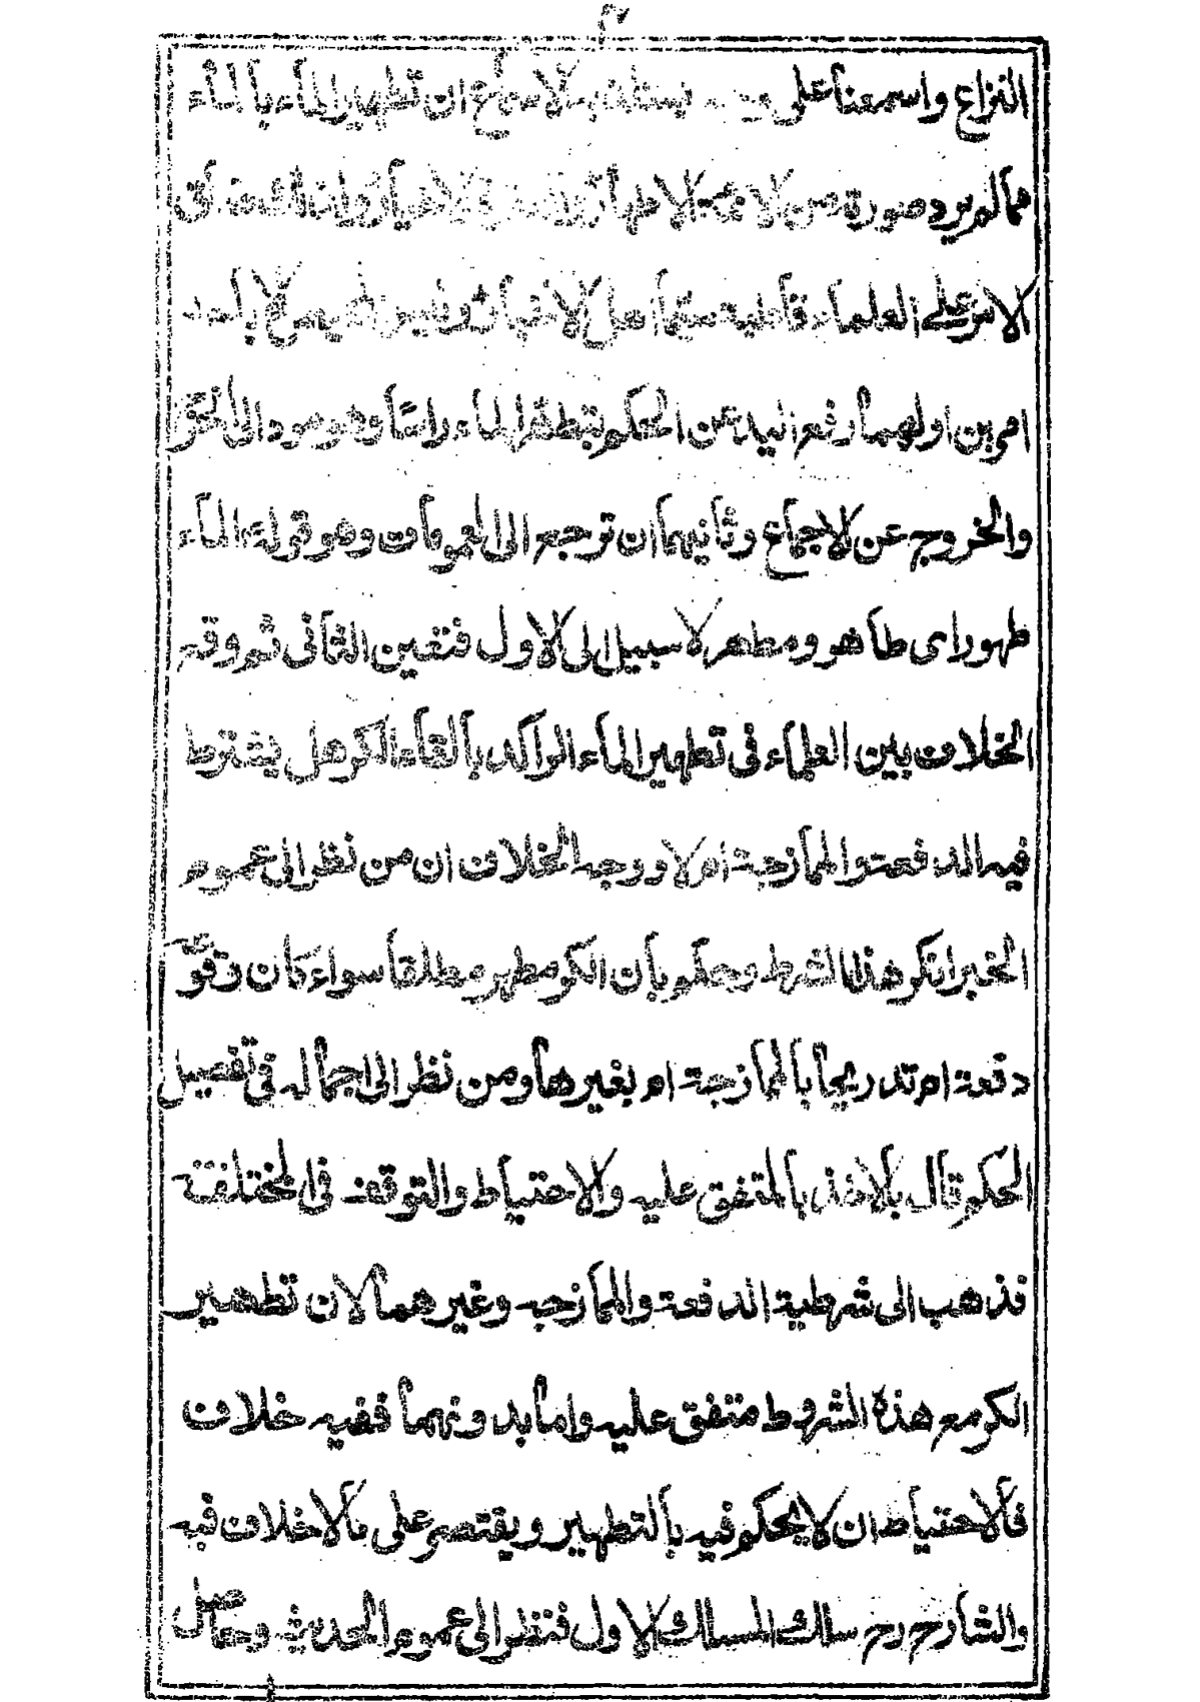 النزاع واسمعنا على الاجماع ان تطهير الماء بالماء
مما لم يرد صورة من الائمة الاطهار في الاخبار
الامر على العلماء
امرين اولهما رفع اليد عن الحكم بتطهر الماء راسًا وهو مود الى الحرج
والخروج عن الاجماع وثانيهما ان ترجع الى العمومات وهو قوله الماء
طهورا اى طاهر ومطهر لا سبيل الى الاول فتعين الثانى ثم وقع
الخلاف بين العلماء فى تطهير الماء الراكد بالقاء الكر هل يشترط
فيه الدفعة والممازجة ام لا ووجه الخلاف ان من نظر الى عموم
الخبر انكر هذا الشرط وحكم بان الكر مطهر مطلقا سواء كان وقوعه
دفعة ام تدريجا بالممازجة ام بغيرها ومن نظر الى اجماله فى تفصيل
الحكم قال بالاخذ بالمتفق عليه والاحتياط والتوقف فى المختلف فيه
فذهب الى شرطية الدفعة والممازجه وغيرهما لان تطهير
الكر مع هذة الشروط متفق عليه واما بدونهما ففيه خلاف
فالاحتياط ان لا يحكم فيه بالتطهير ويقتصر على ما لا خلاف فيه
والشارح رح سلك المسلك الاول فنظر الى عموم الحديث وحاصل